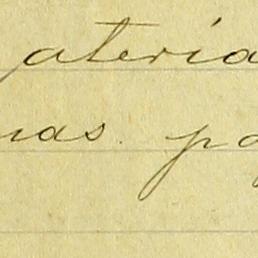 ateria
nas pa